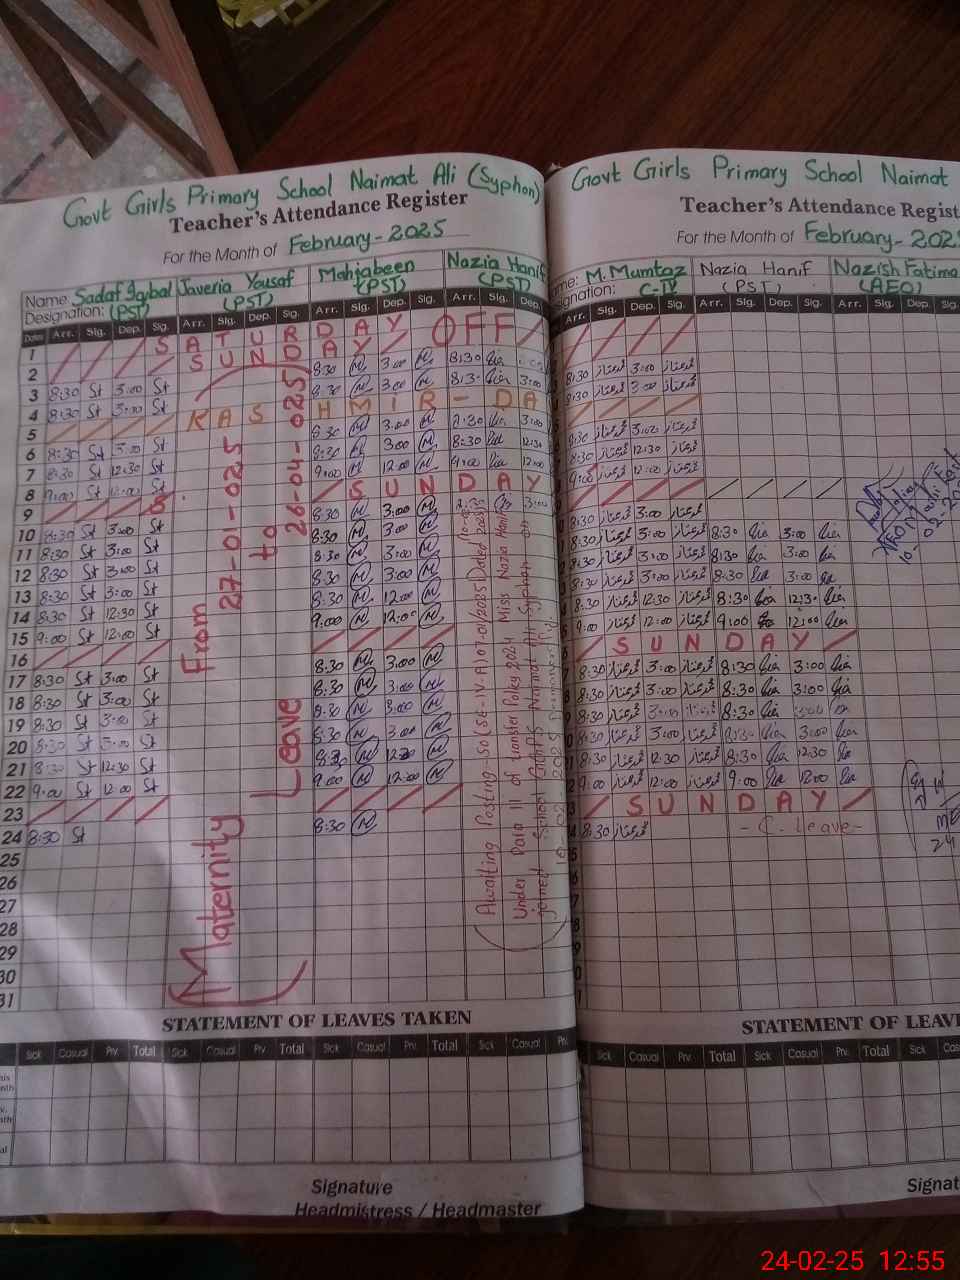 Govt Girls Primary School Naimat Ali (Syphon)
Teacher's Attendance Register
For the Month of February-2025
Name: Sadaf Iqbal Javeria Yousaf Mahjabeen Nazia Hanif
Designation: (PST) (PST) (PST) (PST)
Dates Arr. Sig. Dep. Sig. Arr. Sig. Dep. Sig. Arr. Sig. Dep. Sig. Arr. Sig. Dep.
1 SATURDAY OFF
2 SUNDAY
3 8:30 St 3:00 St 8:30 M 3:00 M 8:30
4 8:30 St 3:00 St 8:30 M 3:00 M 8:30 3:00
5 KASHMIR-DA
6 8:30 St 3:00 St 8:30 M 3:00 M
7 8:30 St 12:30 St 8:30 M 3:00 M 8:30 12:30
8 9:00 St 12:00 St 9:00 M 12:00 M 9:00 12:00
9 SUNDAY
10 8:30 St 3:00 St 8:30 M 3:00 M 3:00
11 8:30 St 3:00 St 8:30 M 3:00 M
12 8:30 St 3:00 St 8:30 M 3:00 M
13 8:30 St 3:00 St 8:30 M 3:00 M
14 8:30 St 12:30 St 8:30 M 12:00 M
15 9:00 St 12:00 St 9:00 M 12:00 M
16
17 8:30 St 3:00 St 8:30 M 3:00 M
18 8:30 St 3:00 St 8:30 M 3:00 M
19 8:30 St 3:00 St 8:30 M 3:00 M
20 8:30 St 3:00 St 8:30 M 3:00 M
21 8:30 St 12:30 St 8:30 M M
22 9:00 St 12:00 St 9:00 M 12:00 M
23
24 8:30 St 8:30 M
25
26
27
28
29
30
31
(Maternity Leave
From 27-01-025
to
26-04-025)
(Awaiting Posting
Under Para III of transfer Policy 2024 Miss Nazia Hanif
joined School GGPS Naimat Ali Syphon on
STATEMENT OF LEAVES TAKEN
Sick Casual Prv. Total Sick Casual Prv Total Sick Casual Prv. Total Sick Casual Prv.
Signature
Headmistress / Headmaster
Govt Girls Primary School Naimat
Teacher's Attendance Regist
For the Month of February-202
me: M. Mumtaz Nazia Hanif Nazish Fatima
signation: C-IV (PST) (AEO)
Arr. Sig. Dep. Sig. Arr. Sig. Dep. Sig. Arr. Sig. Dep. Sig.
8:30 ممتاز 3:00 ممتاز
8:30 ممتاز 3:00 ممتاز
8:30 ممتاز 3:00 ممتاز
8:30 ممتاز 12:30 ممتاز
9:00 ممتاز 12:00 ممتاز
8:30 ممتاز 3:00 ممتاز
8:30 ممتاز 3:00 ممتاز 8:30 3:00
8:30 ممتاز 3:00 ممتاز 8:30 3:00
8:30 ممتاز 3:00 ممتاز 8:30 3:00
8:30 ممتاز 12:30 ممتاز 8:30 12:30
9:00 ممتاز 12:00 ممتاز 9:00 12:00
SUNDAY
8:30 ممتاز 3:00 ممتاز 8:30 3:00
8:30 ممتاز 3:00 ممتاز 8:30 3:00
8:30 ممتاز 3:00 ممتاز 8:30 3:00
8:30 ممتاز 3:00 ممتاز 8:30 3:00
8:30 ممتاز 12:30 ممتاز 8:30 12:30
9:00 ممتاز 12:00 ممتاز 9:00 12:00
SUNDAY
8:30 ممتاز -C. Leave-
STATEMENT OF LEAV
Sick Casual Prv. Total Sick Casual Prv. Total Sick Cas
Signat
24-02-25 12:55